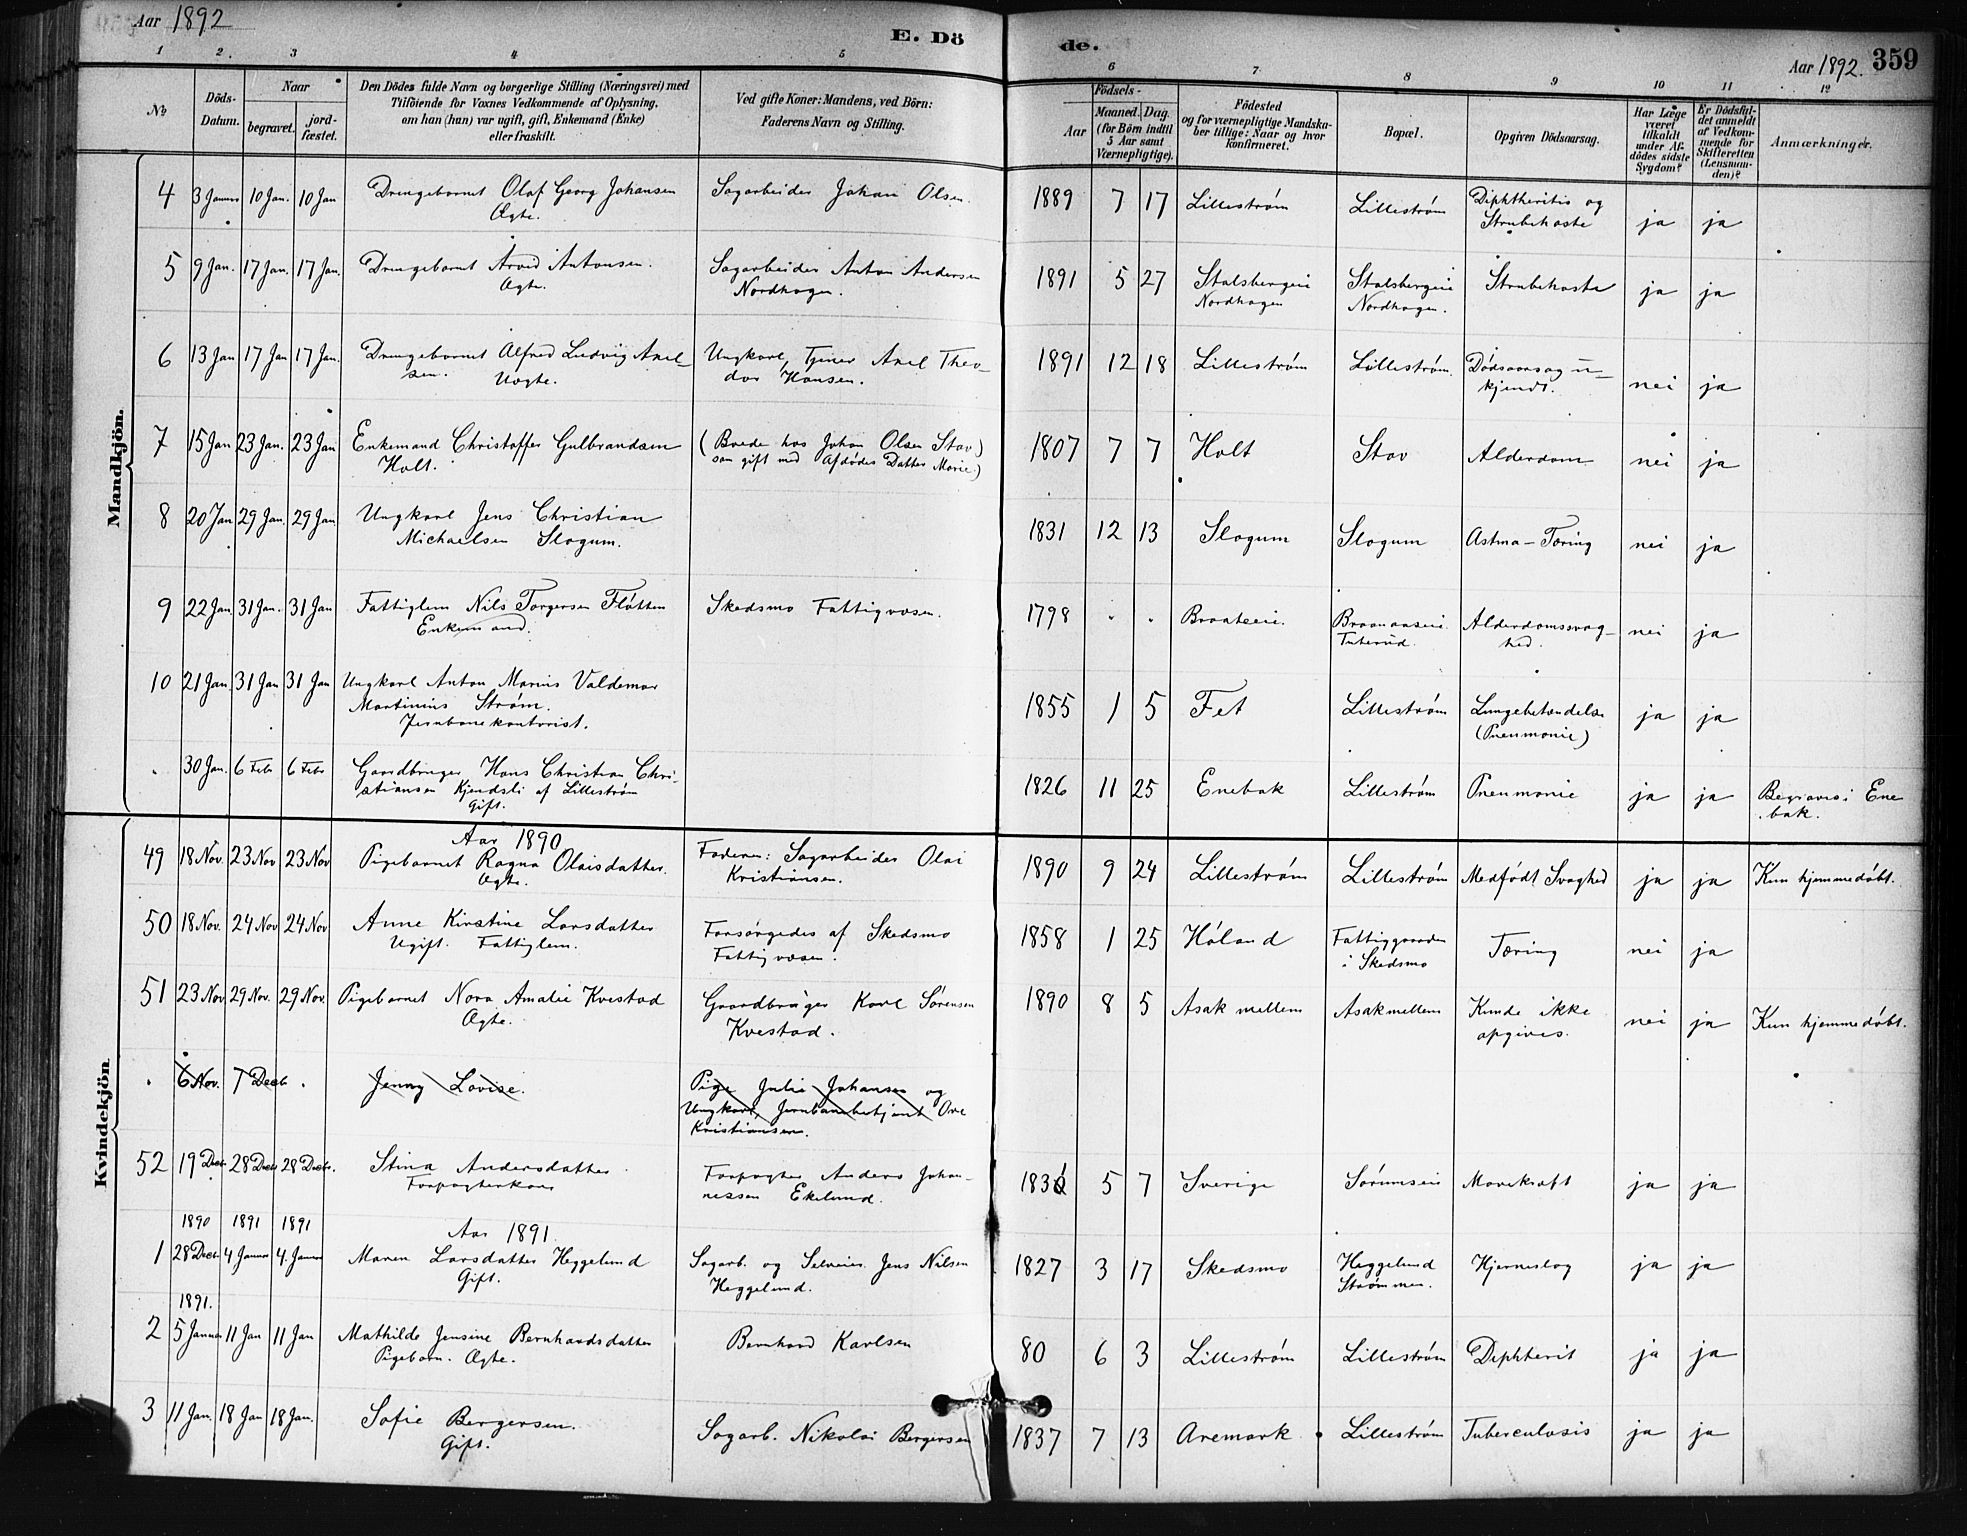 Aar 1892
E. Dö
de.
Aar 1892.
359
1 2. 3 4 5 6 7 8 9 10 11 12
No
Döds-Datum.
Naar
begravet.
jord-fæstet.
Den Dödes fulde Navn og borgerlige Stilling (Næringsvei) med
Tilföiende for Voxnes Vedkommende af Oplysning,
om han (hun) var ugift, gift, Enkemand (Enke)
eller fraskilt.
Ved gifte Koner: Mandens, ved Börn:
Faderens Navn og Stilling.
Födsels-
Aar
Maaned. Dag
(for Börn indtil
5 Aar samt
Værnepligtige).
Födested
og for værnepligtige Mandska-
ber tillige: Naar og hvor
konfirmeret.
Bopæl.
Opgiven Dödsaarsag.
Har Læge
været
tilkaldt
under Af-
dödes sidste
Sygdom?
Er Dödsfal-
det anmeldt
af Vedkom-
mende for
Skifteretten
(Lensman-
den)?
Anmærkninger.
Mandkjön.
4 3 Januar 10 Jan. 10 Jan Drengebarnet Olaf Georg Johansen Sagarbeider Johan Olsen. 1889 7 17 Lillestrøm Lillestrøm Diphtheritis og
Ægte. Strubehoste ja ja
5 9 Jan. 17 Jan. 17 Jan. Drengebarnet Arvid Antonsen. Sagarbeider Anton Andersen 1891 5 27 Stalsbergeie Stalsbergeie Strubehoste ja ja
Ægte. Nordhagen. Nordhagen Nordhagen.
6 13 Jan 17 Jan 17 Jan. Drengebarnet Alfred Ludvig Axel- Ungkarl, Tjener Axel Theo- 1891 12 18 Lillestrøm Lillestrøm. Dødsaarsag u-
sen. Uægte. dor Hansen. kjendt. nei ja
7 15 Jan 23 Jan. 23 Jan Enkemand Christoffer Gulbrandsen (Boede hos Johan Olsen Stav) 1807 7 7 Holt Stav Alderdom nei ja
Holt. som gift med Afdødes Datter Marie.)
8 20 Jan 29 Jan. 29 Jan Ungkarl Jens Christian 1831 12 13 Slogum Slogum Astma - Tæring nei ja
Michaelsen Slogum.
9 22 Jan. 31 Jan. 31 Jan Fattiglem Nils Torgersen Fløtten Skedsmo Fattigvæsen. 1798 . . Braateeie. Alderdomssvag- nei ja
Enkemand. hed.
10 21 Jan. 31 Jan 31 Jan Ungkarl Anton Marius Valdemar 1855 1 5 Fet Lillestrøm Lungebetændelse ja ja
Martinius Strøm. (Pneumonie)
Jernbanekontorist.
. 30 Jan. 6 Febr 6 Febr Gaardbruger Hans Christian Chri- 1826 11 25 Enebak Lillestrøm Pneumonie ja ja Begraves i Ene
stiansen Kjendsli af Lillestrøm bak.
Gift.
Kvindekjön
Aar 1890
49 18 Nov. 23 Nov 23 Nov Pigebarnet Ragna Olaisdatter. Faderen: Sagarbeider Olai 1890 9 24 Lillestrøm Lillestrøm Medfødt Svaghed ja ja Kun hjemmedøbt.
Ægte. Kristiansen.
50 18 Nov. 24 Nov 24 Nov Anne Kirstine Larsdatter Forsørgedes af Skedsmo 1858 1 25 Høland Fattiggaarden Tæring nei ja
Ugift. Fattiglem. Fattigvæsen. i Skedsmo
51 23 Nov 29 Nov. 29 Nov. Pigebarnet Nora Amalie Kvestad Gaardbruger Karl Sørensen 1890 8 5 Asak mellem Asak mellem Kunde ikke nei ja Kun hjemmedøbt.
Ægte. Kvestad. opgives.
. 6 Nov. 7 Decb . Jenny Lovise. Pige Julie Johansen og
Ungkarl, Jernbanebetjent Ove
Kristiansen.
52 19 Decb. 28 Decb 28 Decb. Stina Andersdatter Forpagter Anders Johan- 5 7 Sverige Sørumseie Mavekræft ja ja
Forpagterkone nessen Ekelund.
1890 1891 1891 Aar 1891.
1 28 Decb. 4 Januar 4. Januar Maren Larsdatter Heggelund Sagarb. og Selveier Jens Nilsen 1827 3 17 Skedsmo Heggelund Hjerneslag ja ja
Gift. Heggelund. Strømmen.
1891.
2 5 Januar 11 Jan 11 Jan Mathilde Jensine Bernhardsdatter Bernhard Karlsen 80 6 3 Lillestrøm Lillestrøm Diphterit ja ja
Pigebarn. Ægte.
3 11 Jan. 18 Jan 18 Jan. Sofie Bergersen. Sagarb. Nikolai Bergersen 1837 7 13 Aremark Lillestrøm Tuberculosis ja ja
Gift.